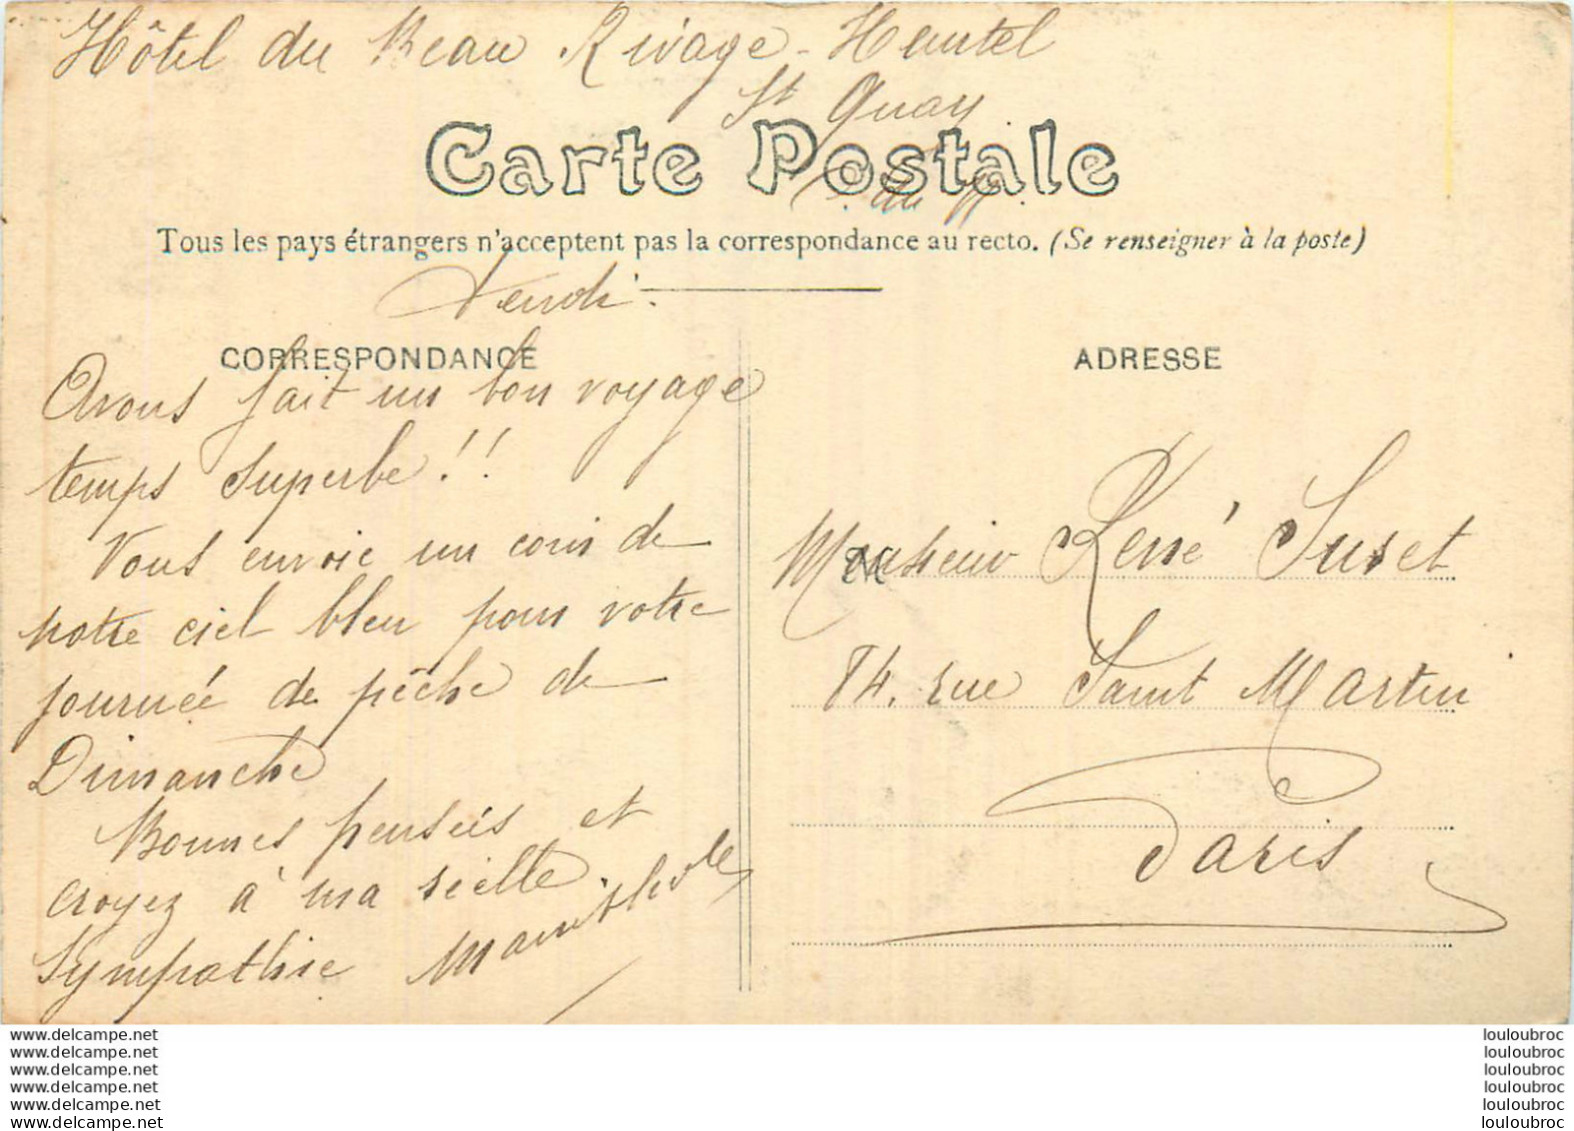 Hôtel du Beau Rivage - Hautel
St Quay
C. du N.
Carte Postale
Tous les pays étrangers n'acceptent pas la correspondance au recto. (Se renseigner à la poste)
CORRESPONDANCE
Avous fait un bon voyage
temps superbe !!
Vous envoie un coin de
notre ciel bleu pour votre
journée de pêche de
Dimanche
Bonnes pensées et
croyez à ma réelle
Sympathie
ADRESSE
Monsieur René Suset
84. rue Saint Martin
Paris
www.delcampe.net
www.delcampe.net
www.delcampe.net
www.delcampe.net
www.delcampe.net
www.delcampe.net
louloubroc
louloubroc
louloubroc
louloubroc
louloubroc
louloubroc